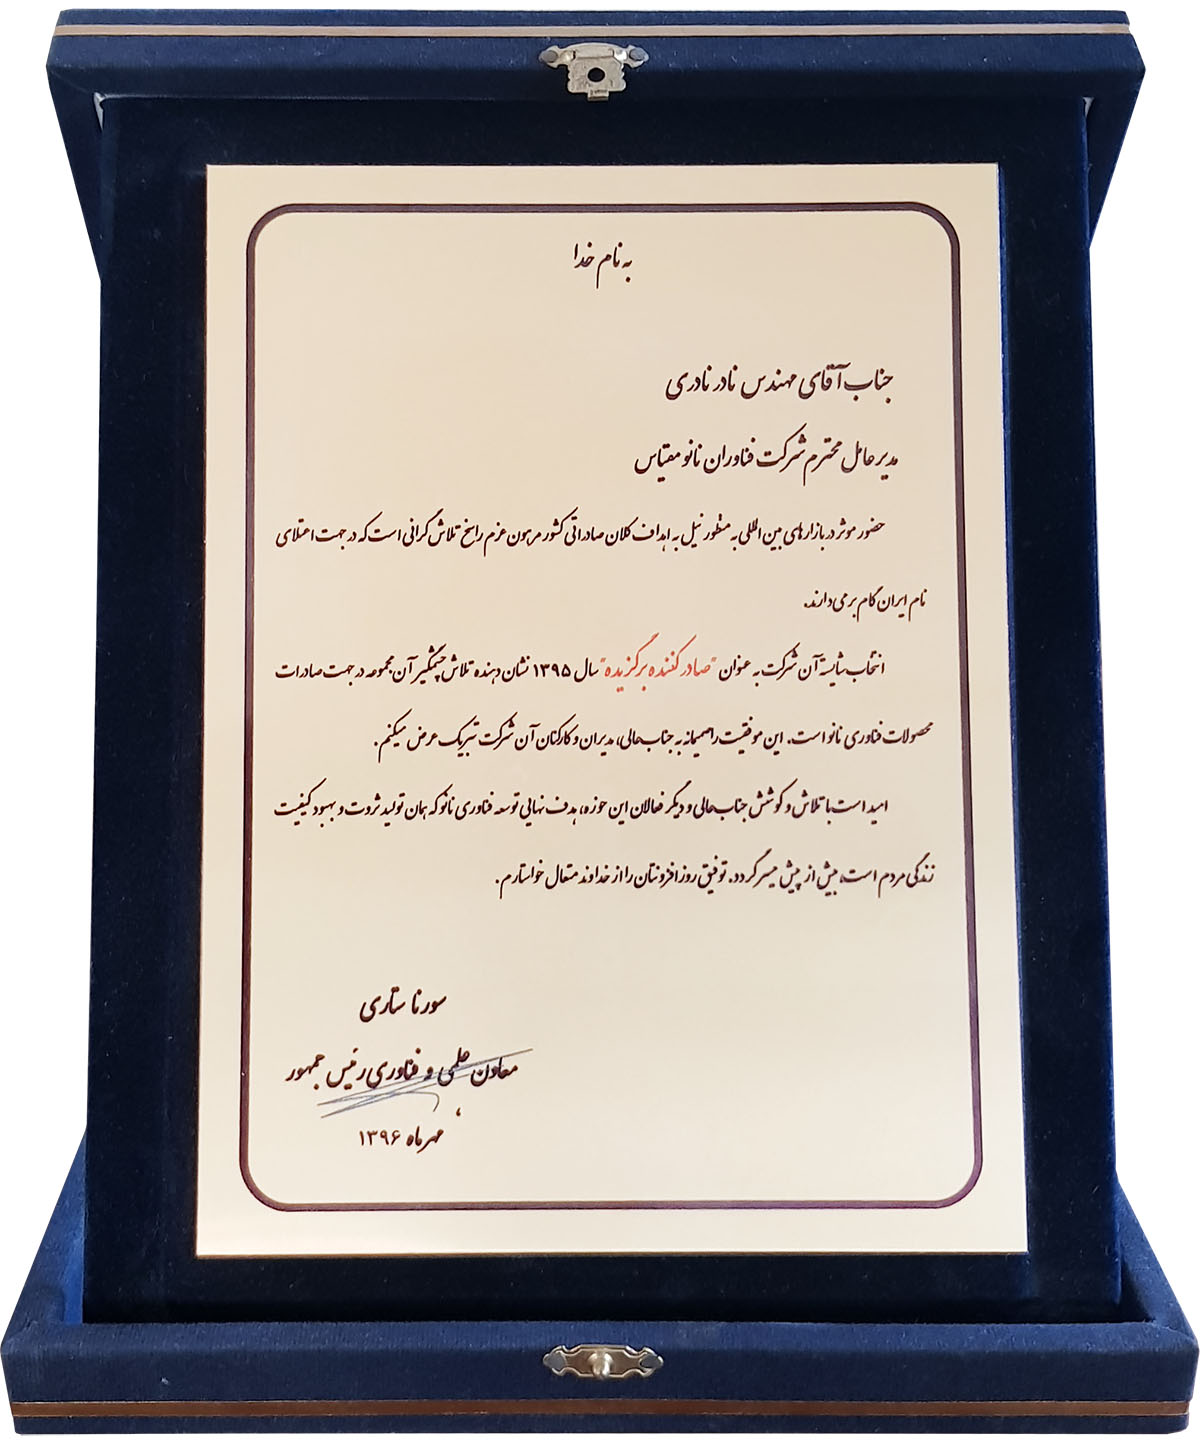 به نام خدا
جناب آقای مهندس نادر نادری
مدیرعامل محترم شرکت فناوران نانو مقیاس
حضور موثر در بازارهای بین المللی به منظور نیل به اهداف کلان صادراتی کشور مرهون عزم راسخ تلاش گرانی است که در جهت اعتلای
نام ایران گام بر می دارند.
انتخاب شایسته آن شرکت به عنوان "صادر کننده برگزیده" سال ۱۳۹۵ نشان دهنده تلاش چشمگیر آن مجموعه در جهت صادرات
محصولات فناوری نانو است. این موفقیت را صمیمانه به جناب عالی، مدیران و کارکنان آن شرکت تبریک عرض میکنم.
امید است با تلاش و کوشش جناب عالی و دیگر فعالان این حوزه، هدف نهایی توسعه فناوری نانو که همان تولید ثروت و بهبود کیفیت
زندگی مردم است، بیش از پیش میسر گردد. توفیق روز افزونتان را از خداوند متعال خواستارم.
سورنا ستاری
معاون علمی و فناوری رئیس جمهور
مهر ماه ۱۳۹۶